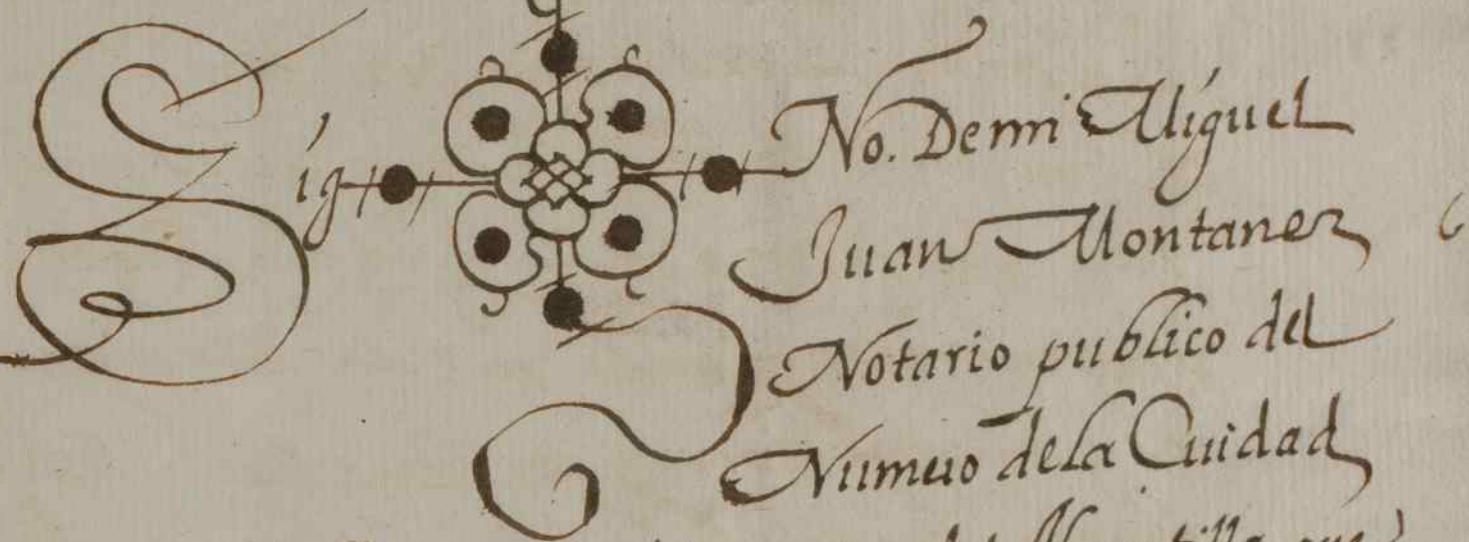 Sig No. De mi Miguel
Juan Montaner
Notario publico del
Numero dela Cuidad